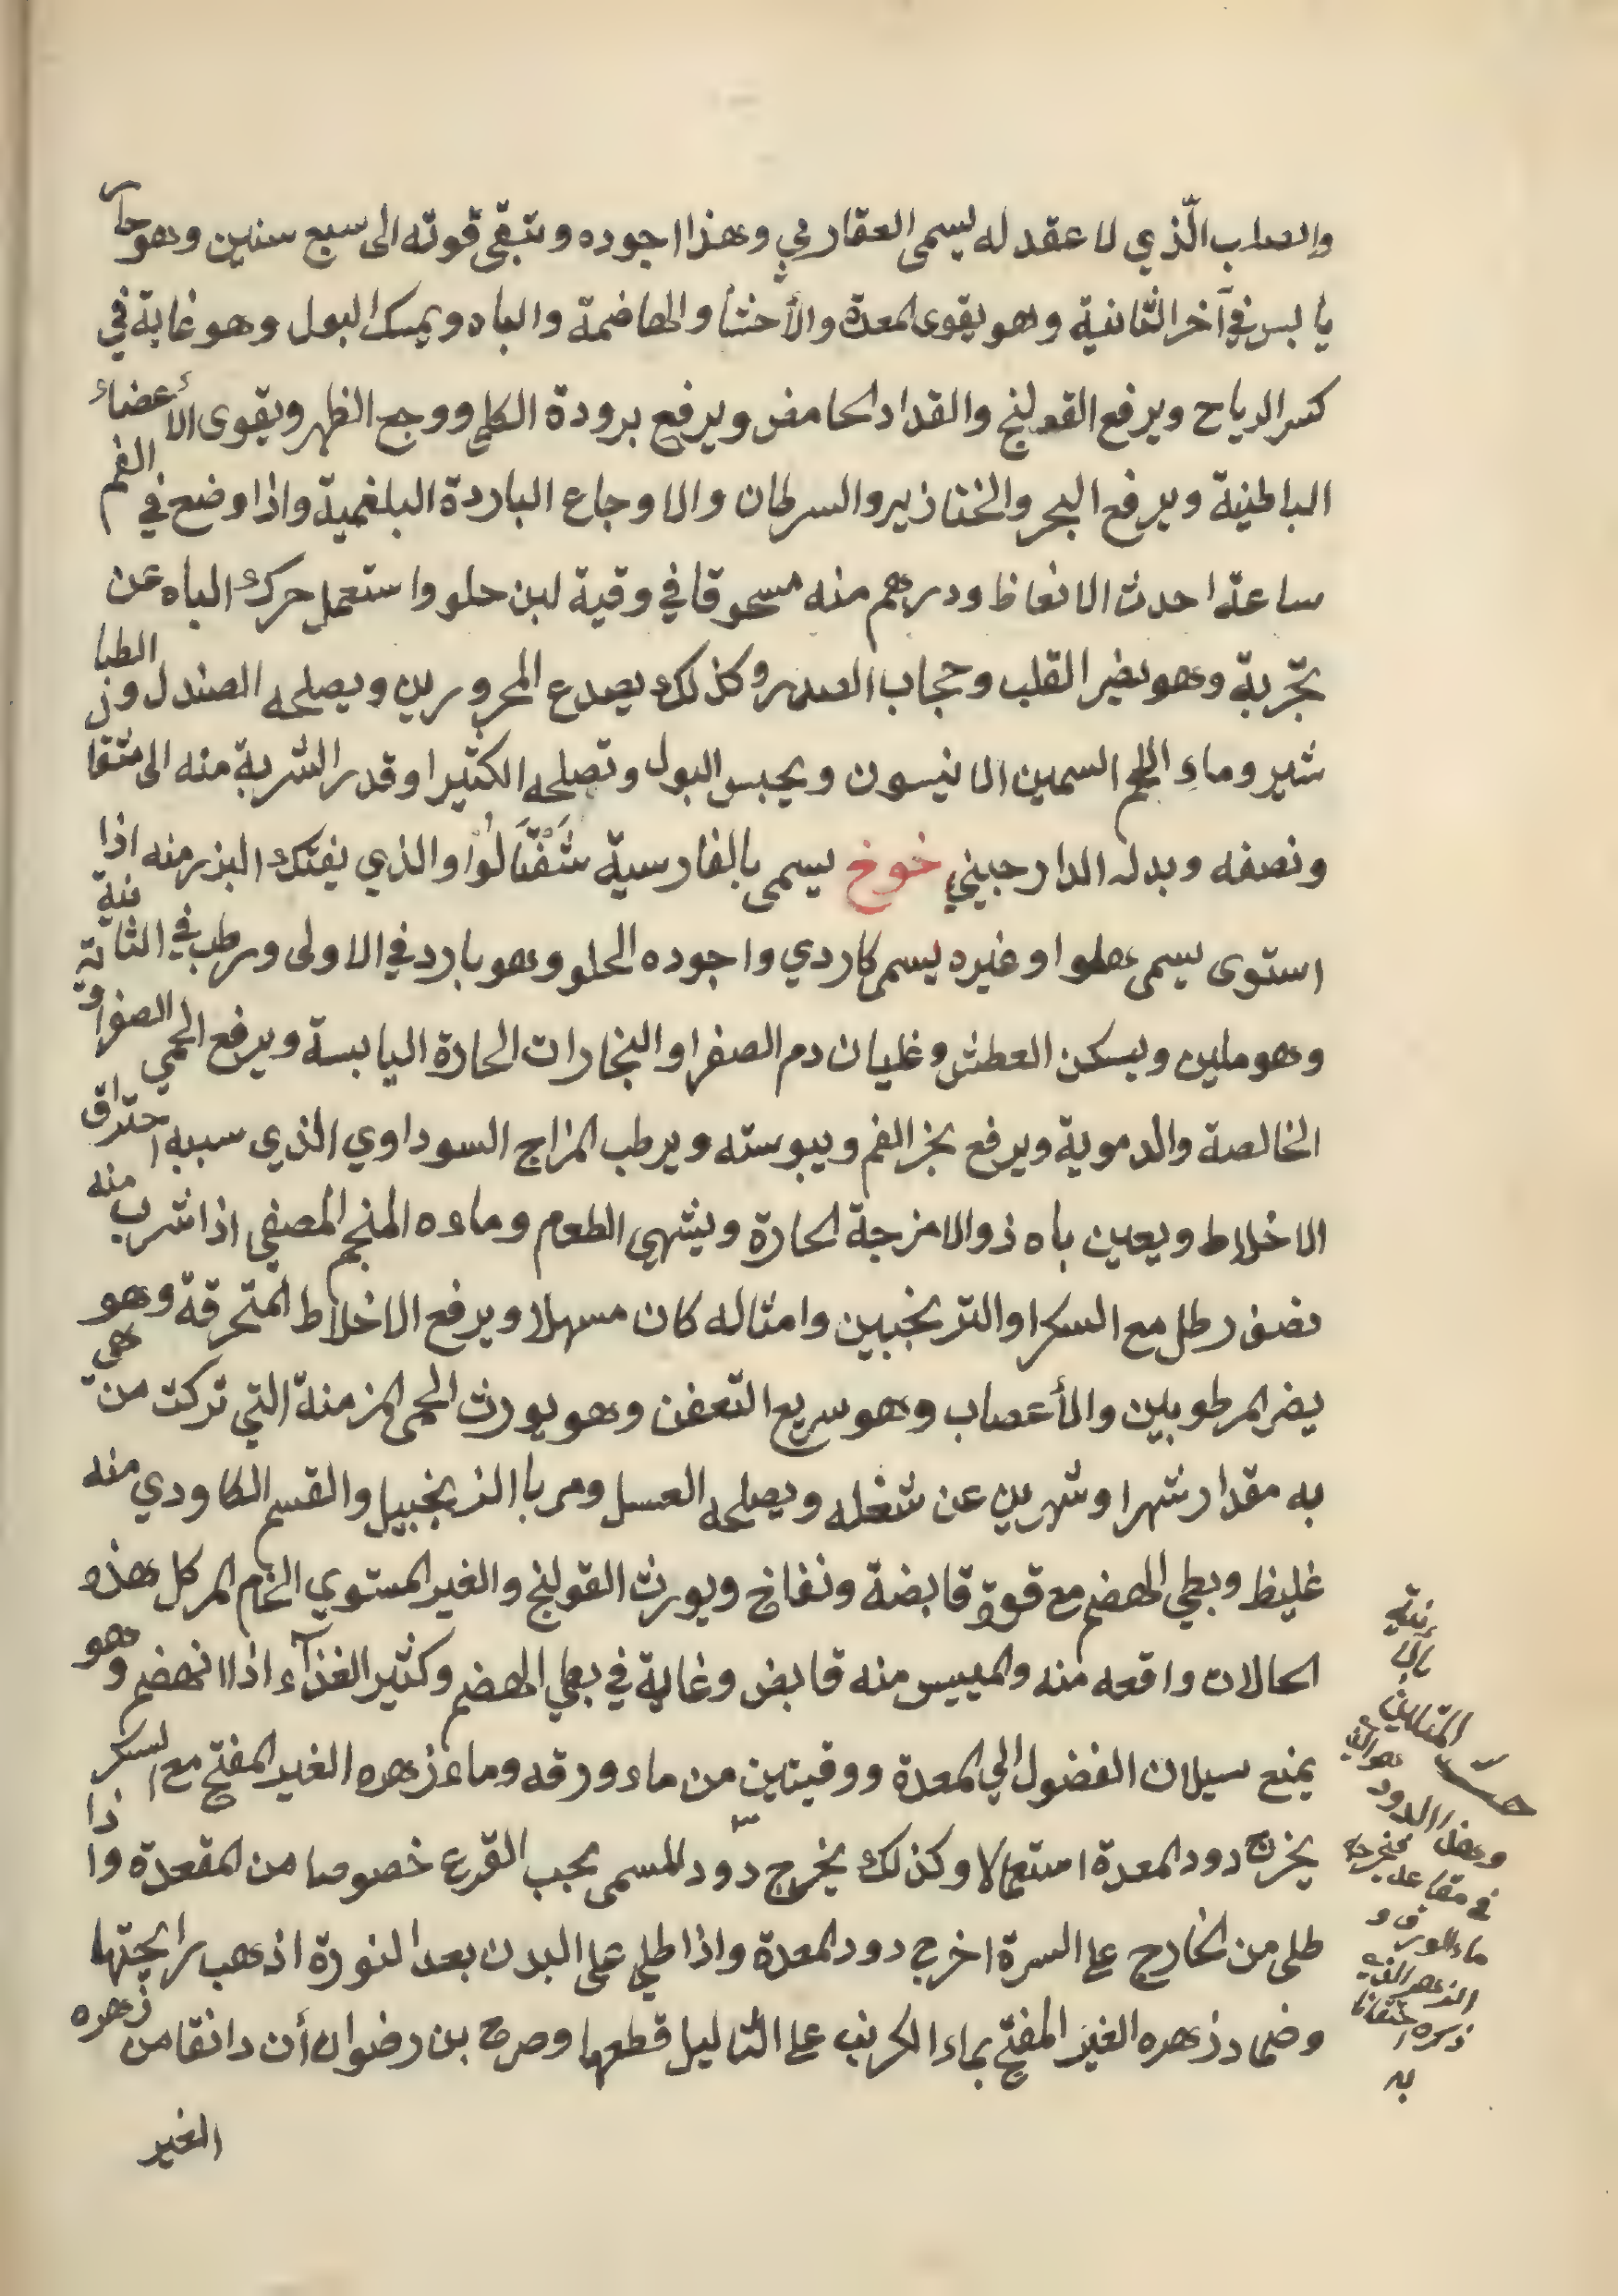 والصلب الّذي لا عقد له يسمى العقاربي وهذا اجوده وتبقى قوته الى سبع سنين وهو حار
يابس في آخر الثانية وهو يقوى المعدة والأحشا والهاضمة والباه ويمسك البول وهو غاية في
كسر الرياح ويرفع القولنج والقداد الحامض ويرفع برودة الكلى ووجع الظهر ويقوى الأعضاء
الباطنية ويرفع البحر والخنازير والسرطان والاوجاع الباردة البلغمية واذا وضع في الفم
ساعة احدث الانعاظ ودرهم منه مسحوقا في وقية لبن حلو واستعمل حرك الباه عن
تجربة وهو يضر القلب وحجاب الصدر وكذلك يصدع المحرورين ويصلحه الصندل والطبا
شير وماء اللحم السمين الانيسون ويحبس البول وتصلحه الكثيرا وقدر الشربة منه الى مثقال
ونصفه وبدله الدارجيني خوخ يسمى بالفارسية شَفْتَالُوْا والذي يفتك البزر منه اذا
استوى يسمى هلوا وغيره يسمى كاردي واجوده الحلو وهو بارد في الاولى ورطب في الثانية
وهو ملين ويسكن العطش وغليان دم الصفرا والبخارات الحارة اليابسة ويرفع الحمى الصفراوية
الخالصة والدموية ويرفع بخر الفم ويبوسته ويرطب المزاج السوداوي الذي سببه احتراق
الاخلاط ويعين باه ذو الامزجة الحارة ويشهي الطعم وماءه المنجم المصفى اذا شرب منه
نصف رطل مع السكر او الترنجبين وامثاله كان مسهلا ويرفع الاخلاط المتحرقة وهو
يضر المرطوبين والأعصاب وهو سريع التعفن وهو يورث الحمى المزمنة التي تركت من هي
به مقدار شهر او شهرين عن شغله ويصلحه العسل ومربا الزنجبيل والقسم الكاودي منه
غليظ وبطي الهضم مع قوة قابضة ونفاخ ويورث القولنج والغير المستوي الخام المر كل هذه
الحالات واقعه منه والميبس منه قابض وغاية في بطي الهضم وكثير الغذآء اذا انهضم وهو
يمنع سيلان الفضول الى المعدة ووقيتين من ماء ورقه وماء زهره الغير المفتح مع السكر
يخرج دود المعدة استعمالا وكذلك يخرج دود المسمى بحب القرع خصوصا من المقعدة واذا
طلى من الخارج على السرة اخرج دود المعدة واذا طلي على البدن بعد النورة اذهب رائحتها
وضماد زهره الغير المفتح بماء الكرنب على الثاليل قطعها وصرح بن رضوان أن دانقا من زهره
الغير
وهذا الدود
في مقاعد
ماء الورق و
به